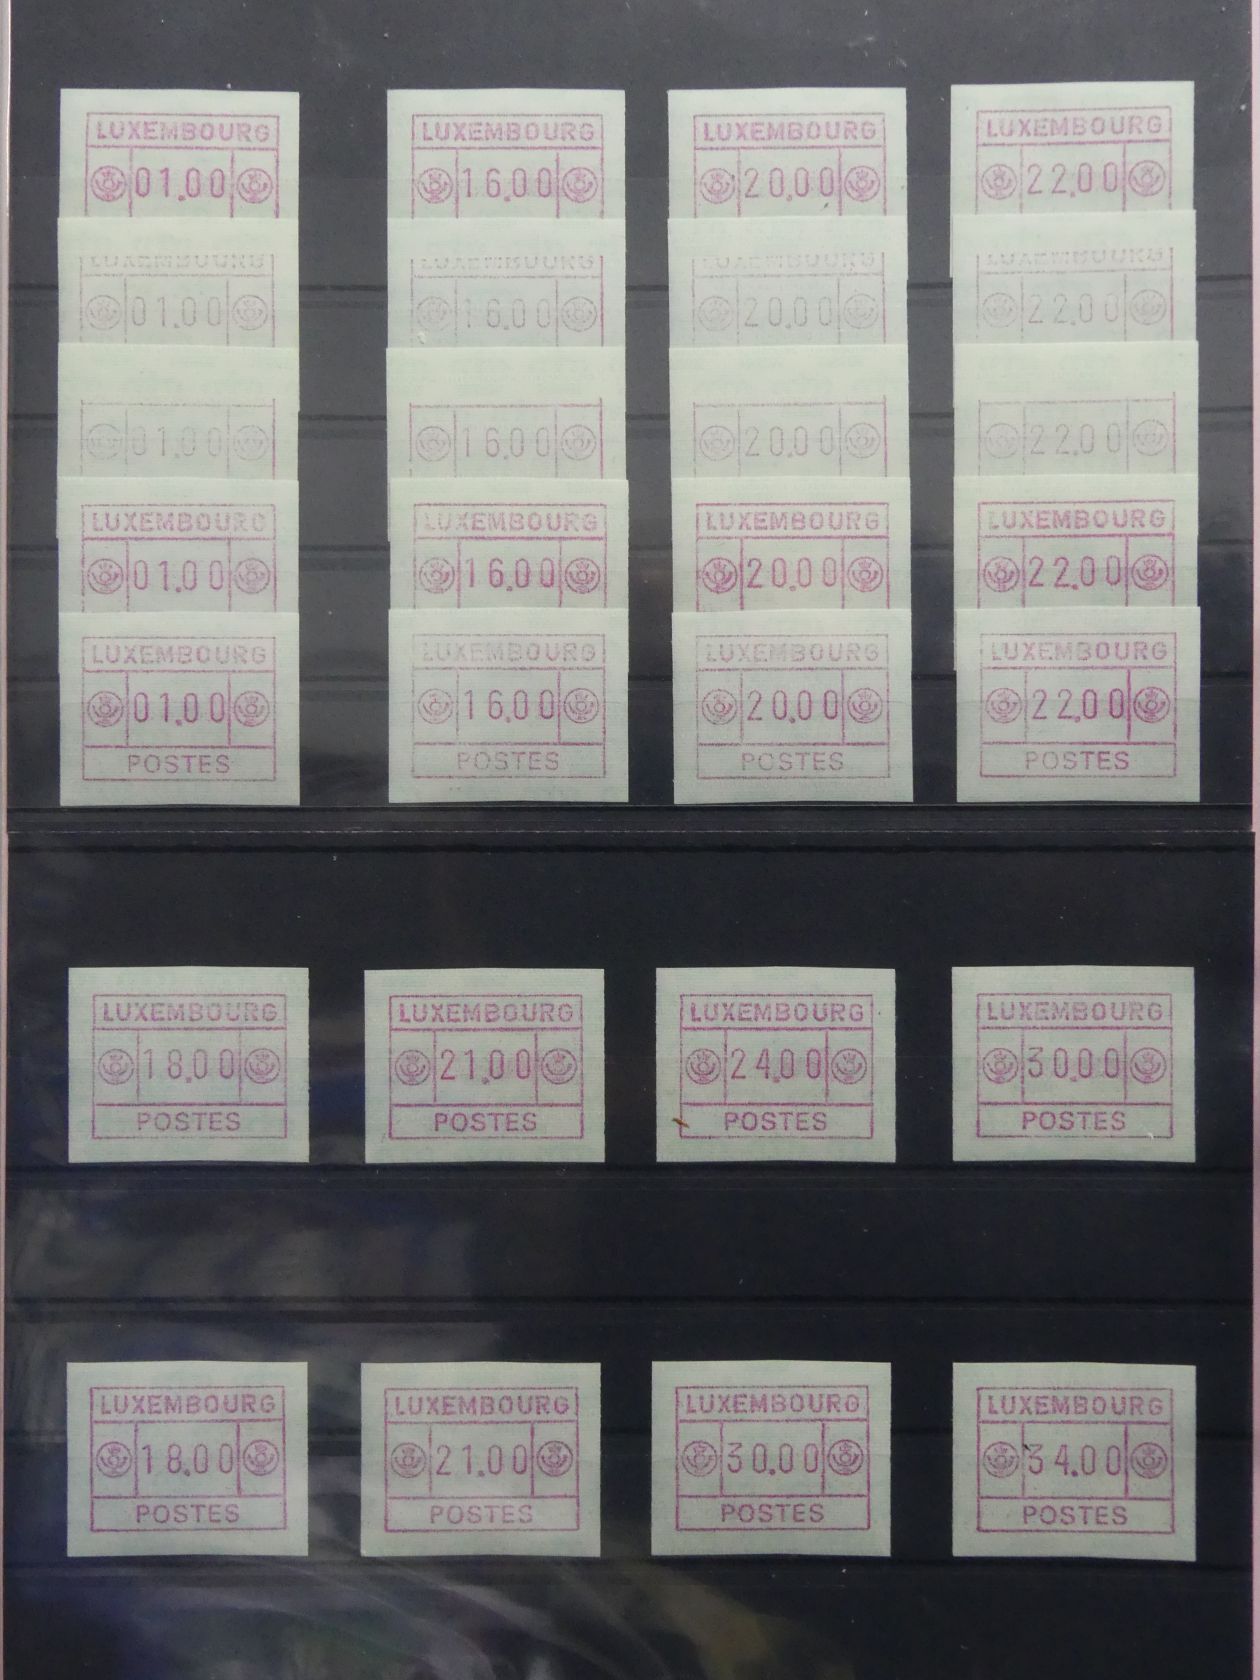 LUXEMBOURG LUXEMBOURG LUXEMBOURG LUXEMBOURG
01.00 16.00 20.00 22.00
LUXEMBOURG LUXEMBOURG LUXEMBOURG LUXEMBOURG
01.00 16.00 20.00 22.00
01.00 16.00 20.00 22.00
LUXEMBOURG LUXEMBOURG LUXEMBOURG LUXEMBOURG
01.00 16.00 20.00 22.00
LUXEMBOURG LUXEMBOURG LUXEMBOURG LUXEMBOURG
01.00 16.00 20.00 22.00
POSTES POSTES POSTES POSTES
LUXEMBOURG LUXEMBOURG LUXEMBOURG LUXEMBOURG
18.00 21.00 24.00 30.00
POSTES POSTES POSTES POSTES
LUXEMBOURG LUXEMBOURG LUXEMBOURG LUXEMBOURG
18.00 21.00 30.00 34.00
POSTES POSTES POSTES POSTES